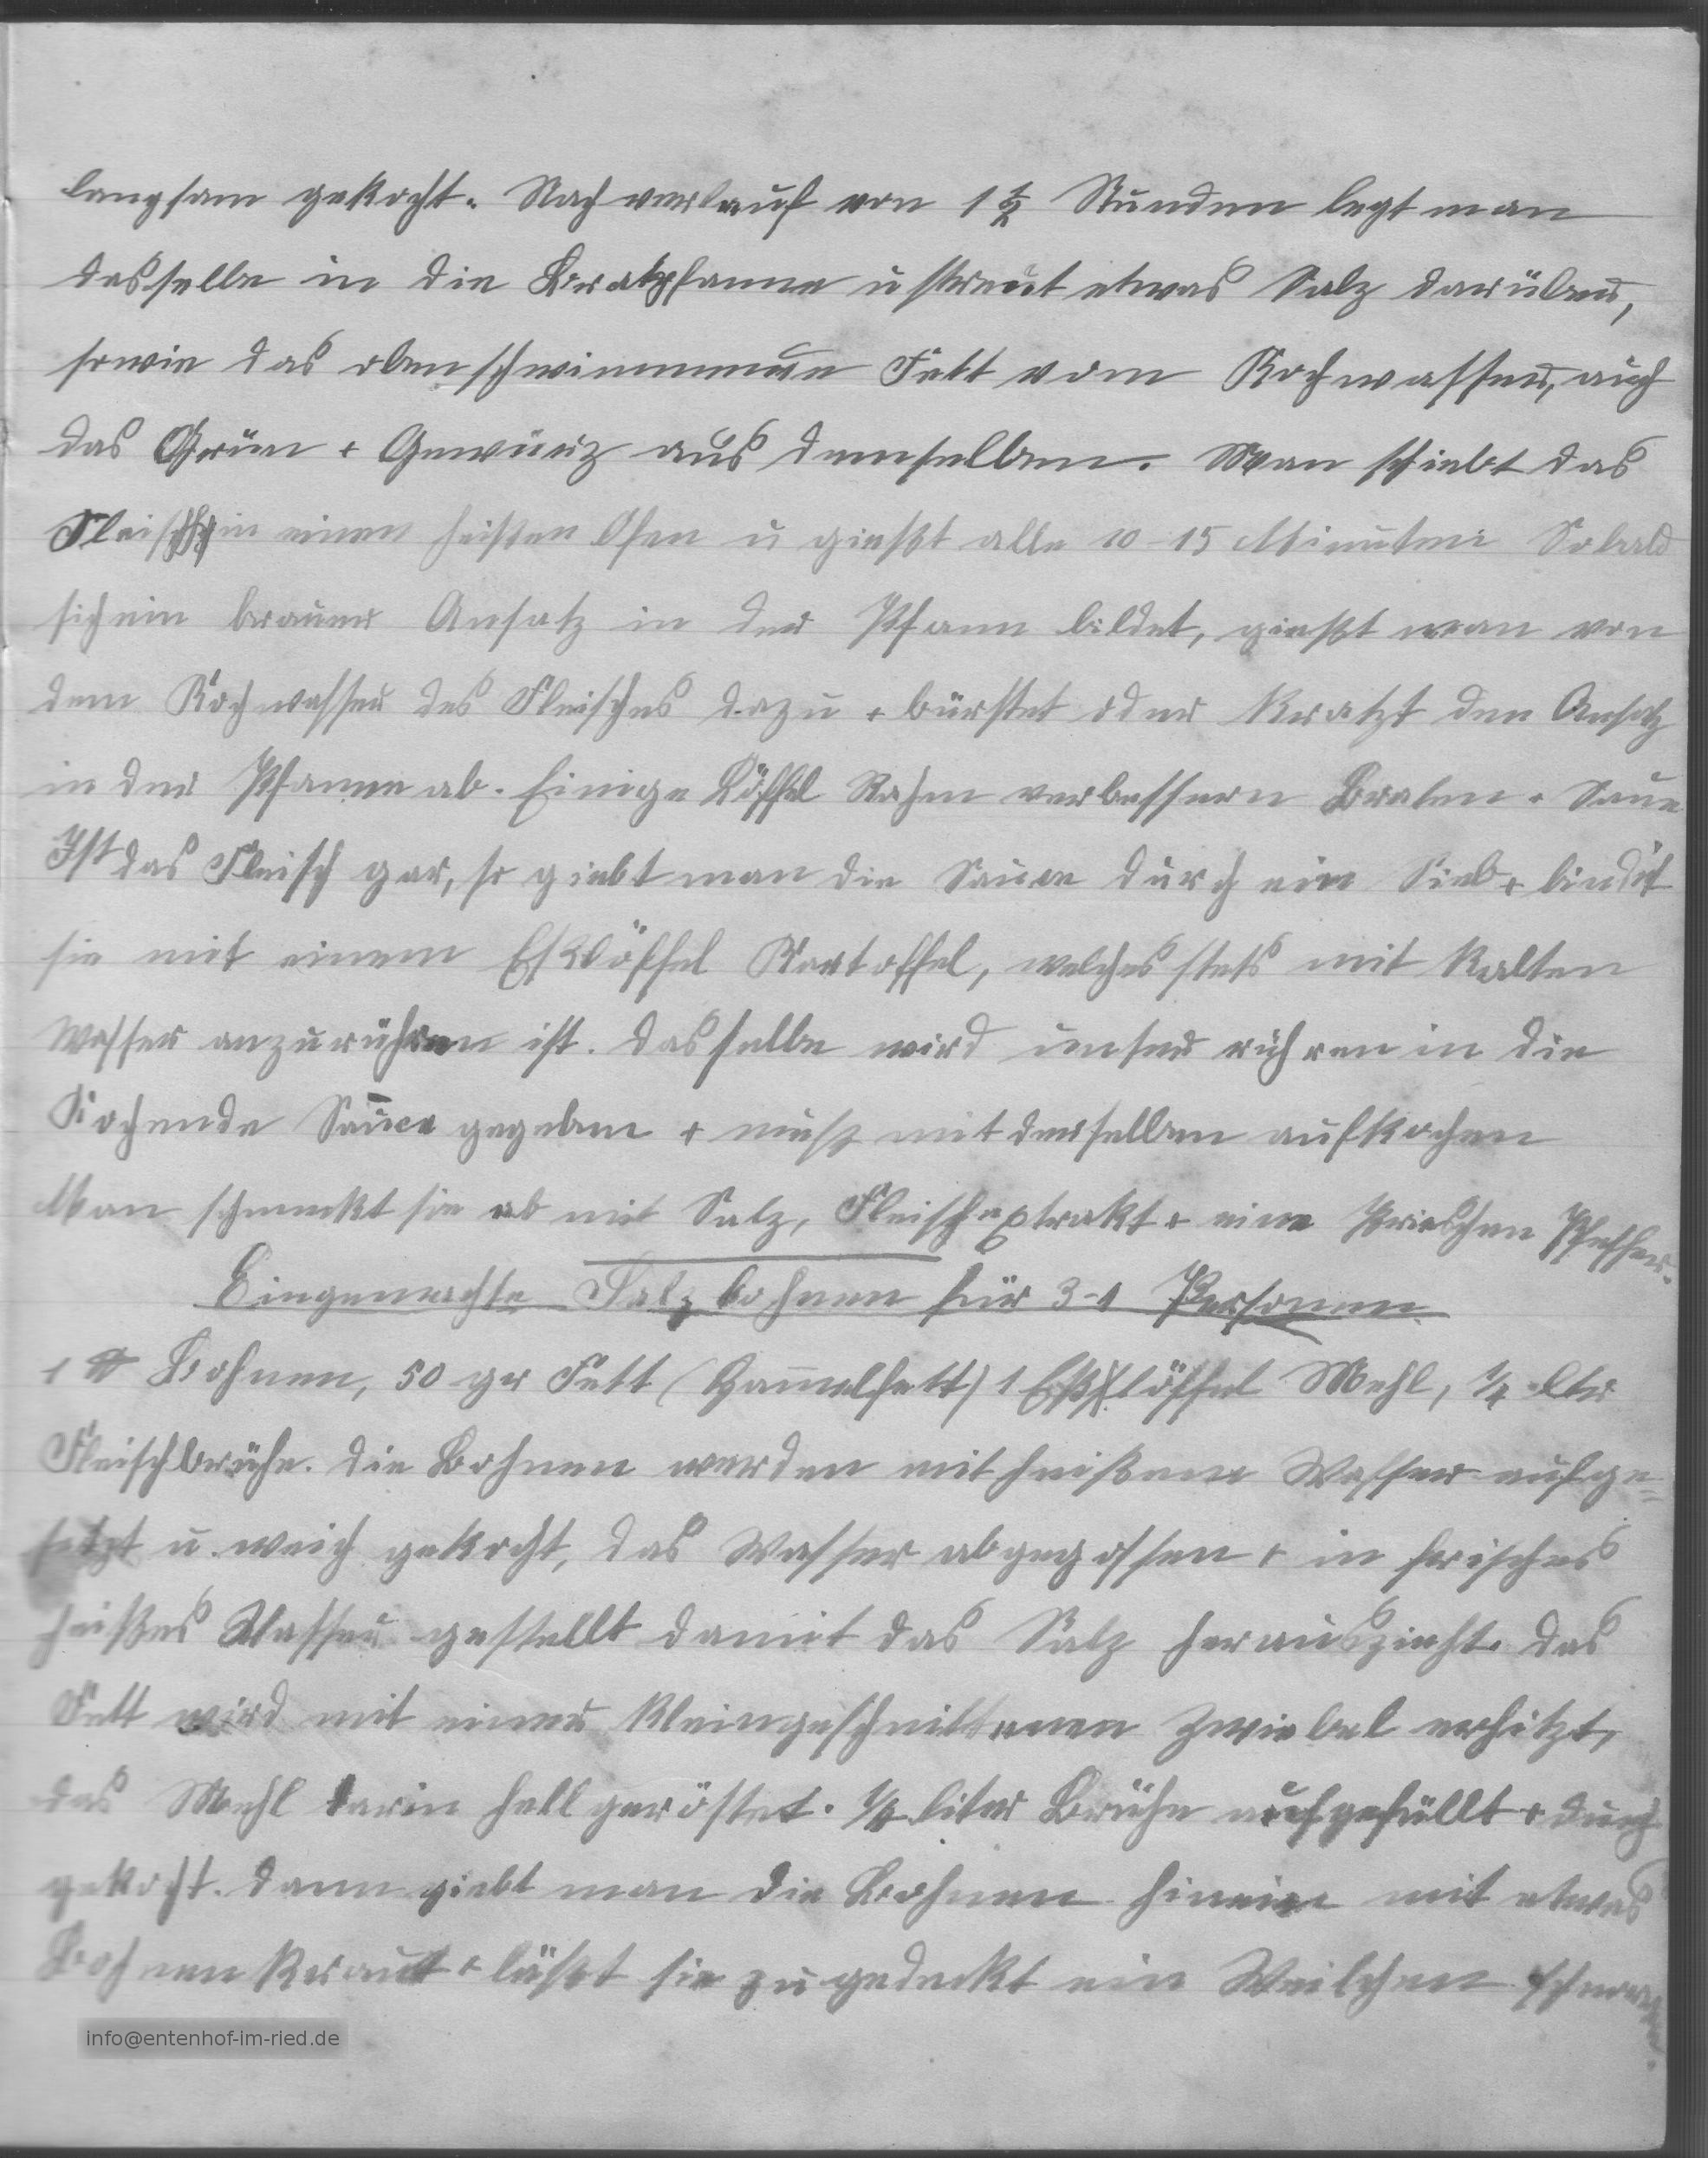 langsam gekocht. Nach verlauf von 1 1/2 Stunden legt man
dasselbe in die Bratpfanne u streut etwas Salz darüber,
sowie das obenschwimmende Fett vom Kochwasser, auch
das Grün + Gewürz aus demselben. Man schiebt das
Fleisch in einen heißen Ofen u gießt alle 10-15 Minuten. Sobald
sich ein brauner Ansatz in der Pfann bildet, gießt man von
dem Kochwasser des Fleisches dazu + bürstet oder kratzt den Ansatz
in der Pfanne ab. Einige Löffel Rahm verbessern Braten + Sauce
Ist das Fleisch gar, so giebt man die Sauce durch ein Sieb + bindet
sie mit einem Eßlöffel Kartoffel, welches stets mit kalten
Wasser anzurühren ist. Dasselbe wird unter rühren in die
Kochende Sauce gegeben + muß mit derselben aufkochen
Man schmeckt sie ab mit Salz, Fleischextrakt + eine Prieschen Pfeffer.
Eingemachte Salzbohnen für 3-4 Personen
1 ℔ Bohnen, 50 gr Fett (Hammelfett) 1 Eßlöffel Mehl, 1/4 ltr
Fleischbrühe. Die Bohnen werden mit heißem Wasser aufge=
setzt u. weich gekocht, das Wasser abgegossen + in frisches
heißes Wasser gestellt damit das Salz herauszieht. Das
Fett wird mit einer kleingeschnittenen Zwiebel erhitzt,
das Mehl darin hell geröstet. 1/4 liter Brühe aufgefüllt + durch
gekocht. Dann giebt man die Bohnen hinein mit etwas
Bohnenkraut + läßt sie zugedeckt ein Weilchen schmoren.
info@entenhof-im-ried.de